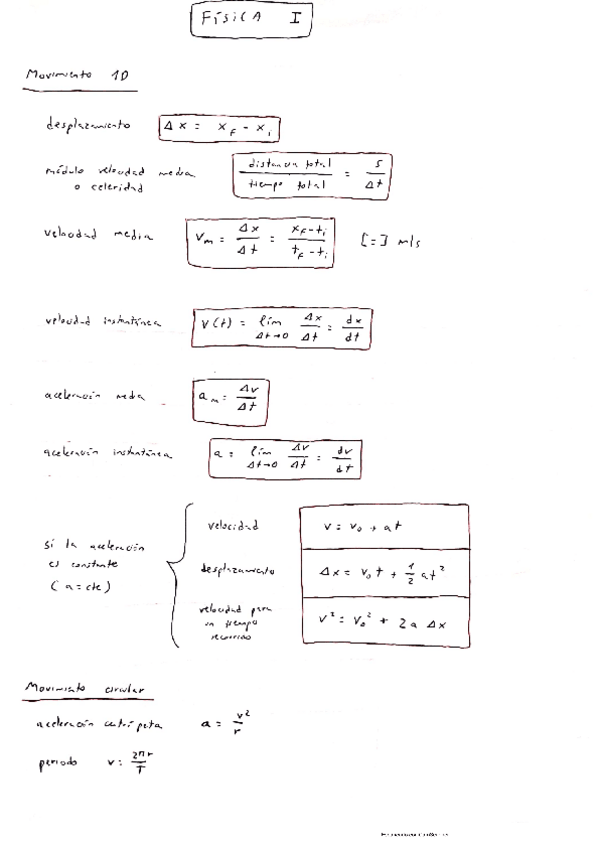 Física I
Movimiento 1D
desplazamiento Δx = x_f - x_i
módulo velocidad media o celeridad distancia total / tiempo total = s / Δt
velocidad media v_m = Δx / Δt = x_f - t_i / t_f - t_i [=] m/s
velocidad instantánea v(t) = lím Δt→0 Δx / Δt = dx / dt
aceleración media a_m = Δv / Δt
aceleración instantánea a = lím Δt→0 Δv / Δt = dv / dt
si la aceleración es constante (a = cte)
velocidad v = v_0 + at
desplazamiento Δx = v_0 t + 1/2 at²
velocidad para un tiempo recorrido v² = v_0² + 2a Δx
Movimiento circular
aceleración centrípeta a = v² / r
periodo v = 2πr / T